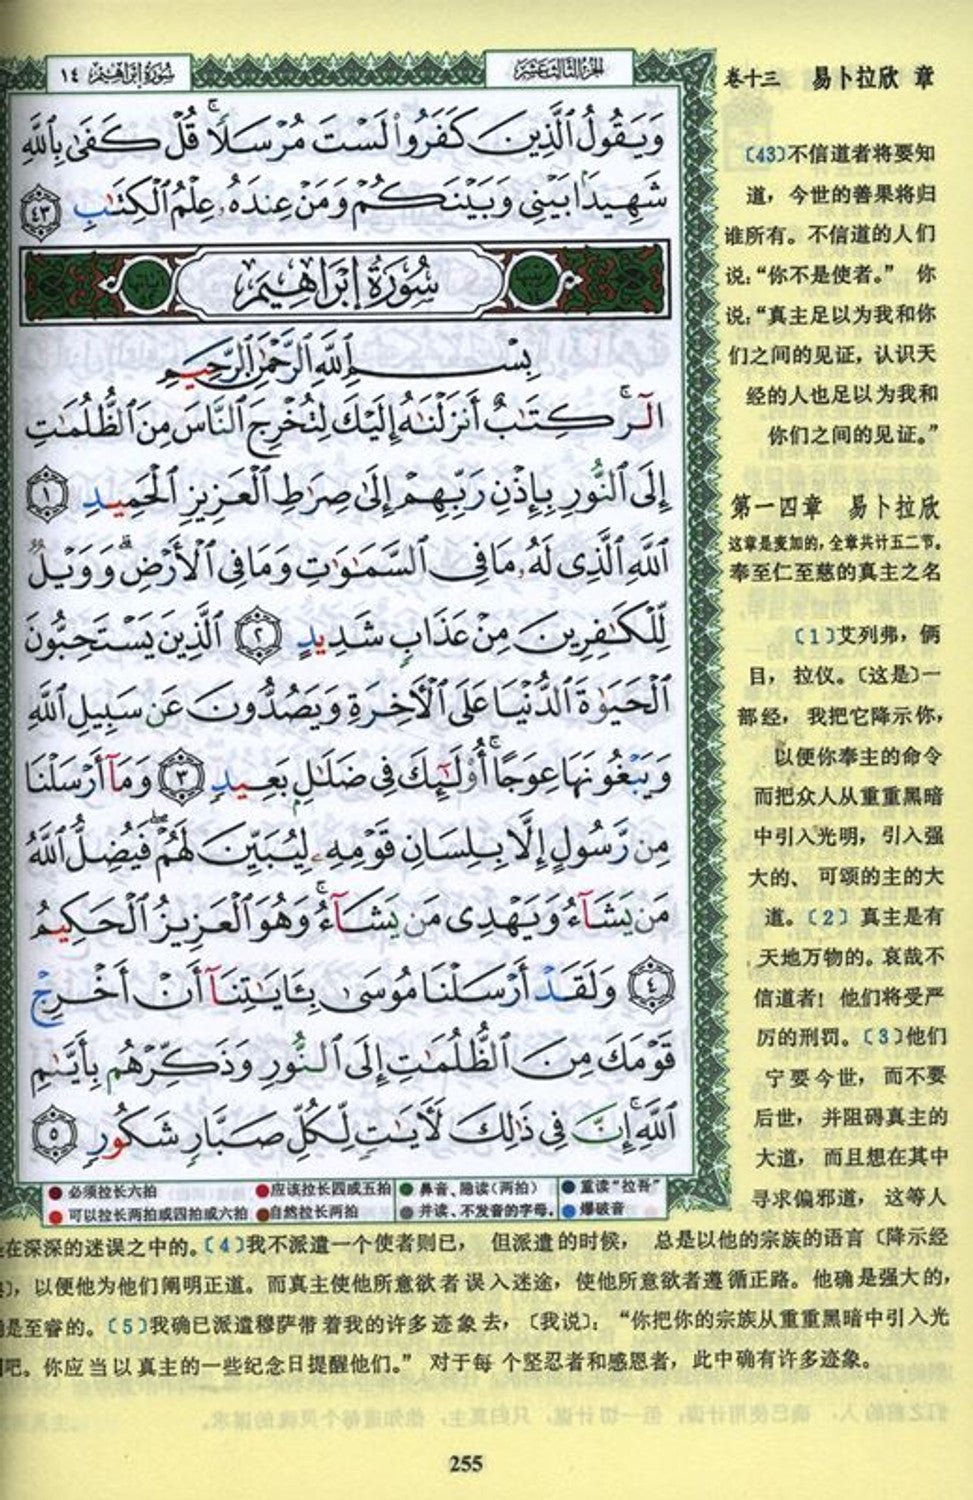 سورة إبراهيم ١٤
الجزء الثالث عشر
وَيَقُولُ ٱلَّذِينَ كَفَرُوا۟ لَسْتَ مُرْسَلًا ۚ قُلْ كَفَىٰ بِٱللَّهِ
شَهِيدًۢا بَيْنِى وَبَيْنَكُمْ وَمَنْ عِندَهُۥ عِلْمُ ٱلْكِتَـٰبِ ٤٣
سُورَةُ إِبْرَاهِيمَ
بِسْمِ ٱللَّهِ ٱلرَّحْمَـٰنِ ٱلرَّحِيمِ
الٓر ۚ كِتَـٰبٌ أَنزَلْنَـٰهُ إِلَيْكَ لِتُخْرِجَ ٱلنَّاسَ مِنَ ٱلظُّلُمَـٰتِ
إِلَى ٱلنُّورِ بِإِذْنِ رَبِّهِمْ إِلَىٰ صِرَٰطِ ٱلْعَزِيزِ ٱلْحَمِيدِ ١
ٱللَّهِ ٱلَّذِى لَهُۥ مَا فِى ٱلسَّمَـٰوَٰتِ وَمَا فِى ٱلْأَرْضِ ۗ وَوَيْلٌ
لِّلْكَـٰفِرِينَ مِنْ عَذَابٍ شَدِيدٍ ٢ ٱلَّذِينَ يَسْتَحِبُّونَ
ٱلْحَيَوٰةَ ٱلدُّنْيَا عَلَى ٱلْـَٔاخِرَةِ وَيَصُدُّونَ عَن سَبِيلِ ٱللَّهِ
وَيَبْغُونَهَا عِوَجًا ۚ أُو۟لَـٰٓئِكَ فِى ضَلَـٰلٍۭ بَعِيدٍ ٣ وَمَآ أَرْسَلْنَا
مِن رَّسُولٍ إِلَّا بِلِسَانِ قَوْمِهِۦ لِيُبَيِّنَ لَهُمْ ۖ فَيُضِلُّ ٱللَّهُ
مَن يَشَآءُ وَيَهْدِى مَن يَشَآءُ ۚ وَهُوَ ٱلْعَزِيزُ ٱلْحَكِيمُ
٤ وَلَقَدْ أَرْسَلْنَا مُوسَىٰ بِـَٔايَـٰتِنَآ أَنْ أَخْرِجْ
قَوْمَكَ مِنَ ٱلظُّلُمَـٰتِ إِلَى ٱلنُّورِ وَذَكِّرْهُم بِأَيَّىٰمِ
ٱللَّهِ ۚ إِنَّ فِى ذَٰلِكَ لَـَٔايَـٰتٍ لِّكُلِّ صَبَّارٍ شَكُورٍ ٥
必须拉长六拍 应该拉长四或五拍 鼻音、隐读(两拍) 重读“拉吾”
可以拉长两拍或四拍或六拍 自然拉长两拍 并读、不发音的字母. 爆破音
卷十三 易卜拉欣 章
〔43〕不信道者将要知
道，今世的善果将归
谁所有。不信道的人们
说：“你不是使者。” 你
说：“真主足以为我和你
们之间的见证，认识天
经的人也足以为我和
你们之间的见证。”
第一四章 易卜拉欣
这章是麦加的，全章共计五二节。
奉至仁至慈的真主之名
〔1〕艾列弗，俩
目，拉仪。〔这是〕一
部经，我把它降示你，
以便你奉主的命令
而把众人从重重黑暗
中引入光明，引入强
大的、可颂的主的大
道。〔2〕真主是有
天地万物的。哀哉不
信道者！他们将受严
厉的刑罚。〔3〕他们
宁要今世，而不要
后世，并阻碍真主的
大道，而且想在其中
寻求偏邪道，这等人
在深深的迷误之中的。〔4〕我不派遣一个使者则已，但派遣的时候，总是以他的宗族的语言〔降示经
〕，以便他为他们阐明正道。而真主使他所意欲者误入迷途，使他所意欲者遵循正路。他确是强大的，
是至睿的。〔5〕我确已派遣穆萨带着我的许多迹象去，〔我说〕：“你把你的宗族从重重黑暗中引入光
吧。你应当以真主的一些纪念日提醒他们。”对于每个坚忍者和感恩者，此中确有许多迹象。
255